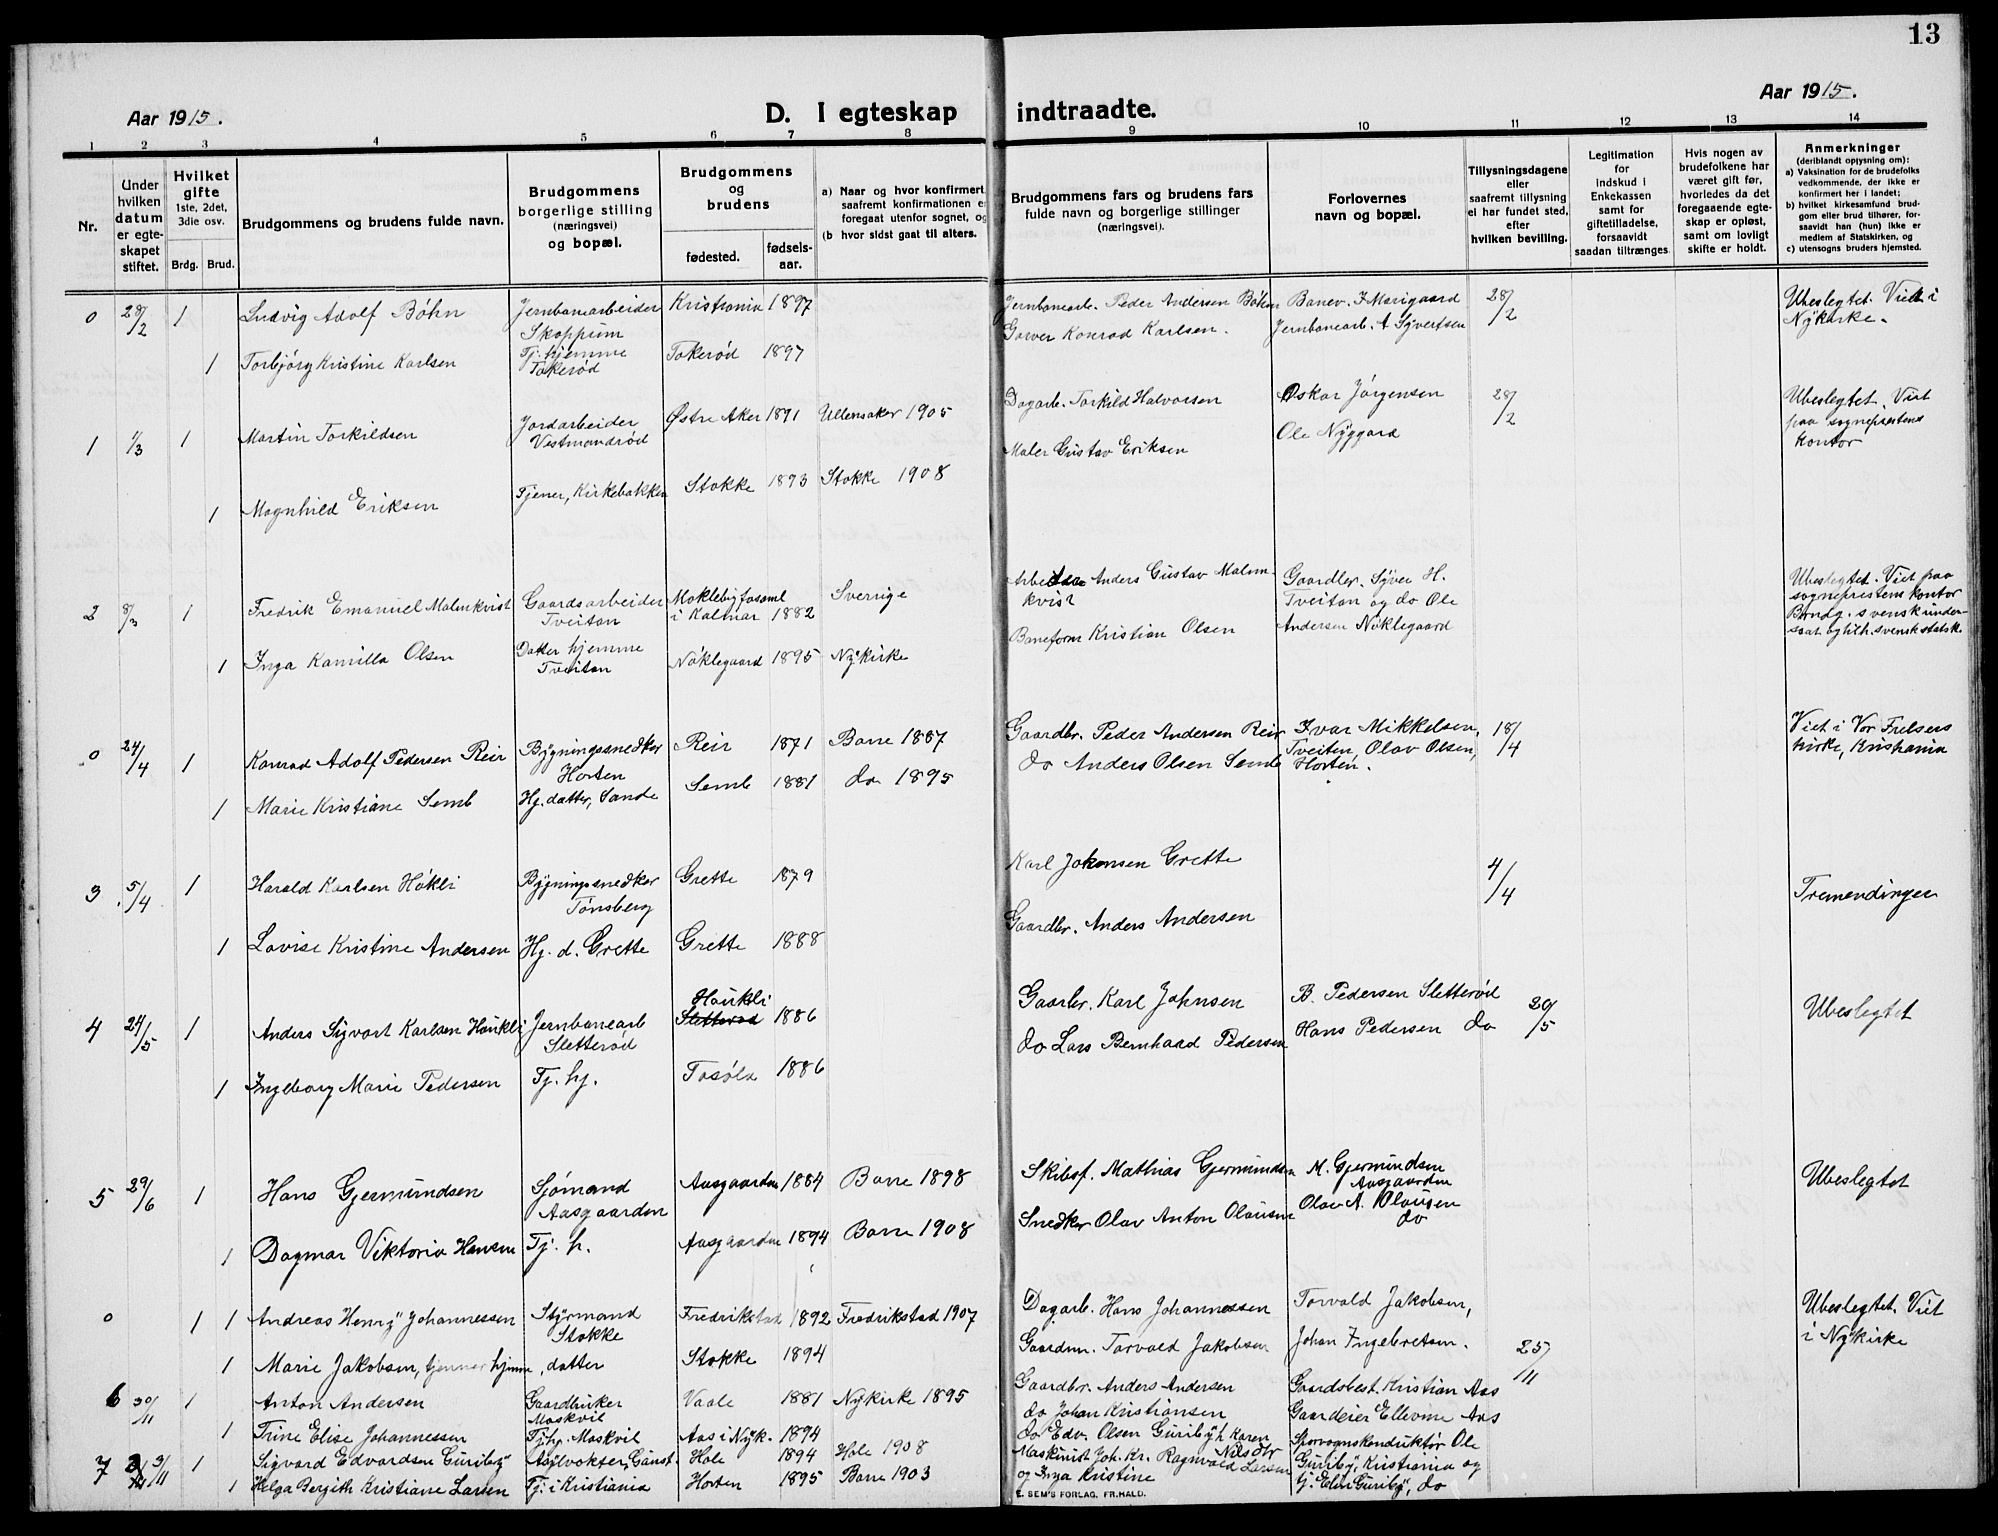 13
Aar 1915.
D. I egteskap indtraadte.
Aar 1915.
1 2 3 4 5 6 7 8 9 10 11 12 13 14
Nr.
Under
hvilken
datum
er egte-
skapet
stiftet.
Hvilket
gifte
1ste, 2det,
3die osv.
Brdg. Brud.
Brudgommens og brudens fulde navn.
Brudgommens
borgerlige stilling
(næringsvei)
og bopæl.
Brudgommens
og
brudens
fødested.
fødsels-
aar.
a) Naar og hvor konfirmert,
saafremt konfirmationen e
foregaat utenfor sognet, og
(b hvor sidst gaat til alters.
Brudgommens fars og brudens fars
fulde navn og borgerlige stillinger
(næringsvei).
Forlovernes
navn og bopæl.
Tillysningsdagene
eller
saafremt tillysning
ei har fundet sted,
efter
hvilken bevilling.
Legitimation
for
indskud i
Enkekassen
samt for
giftetilladelse,
forsaavidt
saadan tiltrænges
Hvis nogen av
brudefolkene har
været gift før,
hvorledes da det
foregaaende egte-
skap er opløst,
samt om lovligt
skifte er holdt.
Anmerkninger
(deriblandt opjysning om):
a) Vaksination for de brudefolks
vedkommende, der ikke er
konfirmert her i landet;
b) hvilket kirkesamfund brud-
gom eller brud tilhører, for-
saavidt han (hun) ikke er
medlem af Statskirken, og
c) utensogns bruders hjemsted.
0 28/2 1 Ludvig Adolf Böhn Jernbanearbeider Skoppum Kristiania 1897 Jernbanearb. Peder Andersen Böhn Banev. I. Marigaard 28/2 Ubeslegtet. Viet i Nykirke.
1 Torbjörg Kristine Karlsen Tj. hjemme Takeröd Takeröd 1897 Garver Konrad Karlsen. Jernbanearb. A Syvertsen
1 1/3 1 Martin Torkildsen Jordarbeider Vestmandröd Østre Aker 1891 Ullensaker 1905 Dagarb. Torkild Halvorsen Oskar Jörgensen 28/2 Ubeslegtet. Viet paa sogneprestens kontor
1 Magnhild Eriksen Tjener, Kirkebakken Stokke 1893 Stokke 1908 Maler Gustav Eriksen Ole Nyggard
2 8/3 1 Fredrik Emanuel Malmkvist Gaardsarbeider Tveitan i Kalmar 1882 Sverige Anders Gustav Malmkvist Gaardbr. Syver H. Tveitan og do Ole Andersen Nöklegaard Ubeslegtet. Viet paa sogneprestens kontor Brudg. svensk undersaat og tilh. svensk statsk.
1 Inga Kamilla Olsen Datter hjemme Tveitan Nöklegaard 1895 Nykirke Baneform Kristian Olsen
0 24/4 1 Konrad Adolf Pedersen Reir Bygningssnedker Horten Reir 1871 Borre 1887 Gaardbr. Peder Andersen Reir Ivar Mikkelsen, Tveiten, Olav Olsen, Horten. 18/4 Viet i Vor Frelsers kirke, Kristiania
1 Marie Kristiane Semb Hj. datter, Sande Semb 1881 do 1895 do Anders Olsen Semb
3 5/4 1 Harald Karlsen Hökli Bygningssnedker Tönsberg Grette 1879 Karl Johansen Grette 4/4 Tremendinger
1 Lovise Kristine Andersen Hj. d. Grette Grette 1888 Gaardbr. Anders Andersen
4 24/5 1 Anders Sigvart Karlsen Haukli Jernbanearb Sletteröd Haukli 1886 Gaarbr. Karl Johnsen B. Pedersen Sletteröd 20/5 Ubeslegtet
1 Ingeborg Marie Pedersen Tj. hj. 1886 do Lars Bernhard Pedersen Hans Pedersen do
5 29/6 1 Hans Gjermundsen Sjömand Aasgaarden Aasgaarden 1884 Borre 1898 Skibsf. Mathias Gjermundsen M. Gjermundsen Aasgaarden Ubeslegtet
1 Dagmar Viktoria Hansen Tj. h. Aasgaarden 1894 Borre 1908 Snedker Olav Anton Olausen Olav A. Olausen do
0 1 1 Andreas Henry Johannessen Styrmand Stokke Fredrikstad 1892 Fredrikstad 1907 Dagarb. Hans Johannessen Torvald Jakobsen, Ubeslegtet. Viet i Nykirke
1 Marie Jakobsen, tjener hjemme, datter Stokke 1894 Gaardm. Torvald Jakobsen Johan Ingebretsen. 25/11
6 30/11 1 Anton Andersen Gaardbruker Moskvil Vaale 1881 Nykirk 1895 Gaardbr. Anders Andersen Gaardsbest. Kristian Aas
1 Trine Elise Johannessen Tj. hj. Moskvil Aas i Nyk. 1894 do Johan Kristiansen Gaardeier Ellevine Aas
7 3/11 1 Sigvard Edvardsen Guriby Asylvokter, Gaust. Hole 1894 Hole 1908 do Edv. Olsen Guriby h Karen Nilsdtr Sporvognskonduktör Ole Guriby, Kristiania og tj. Elen Guriby, do
1 Helga Bergith Kristiane Larsen Tj. i Kristiania Horten 1895 Borre 1903 Maskinist Joh. Kr. Ragnvald Larsen og Inga Kristine
E. SEM'S FORLAG. FR.HALD.